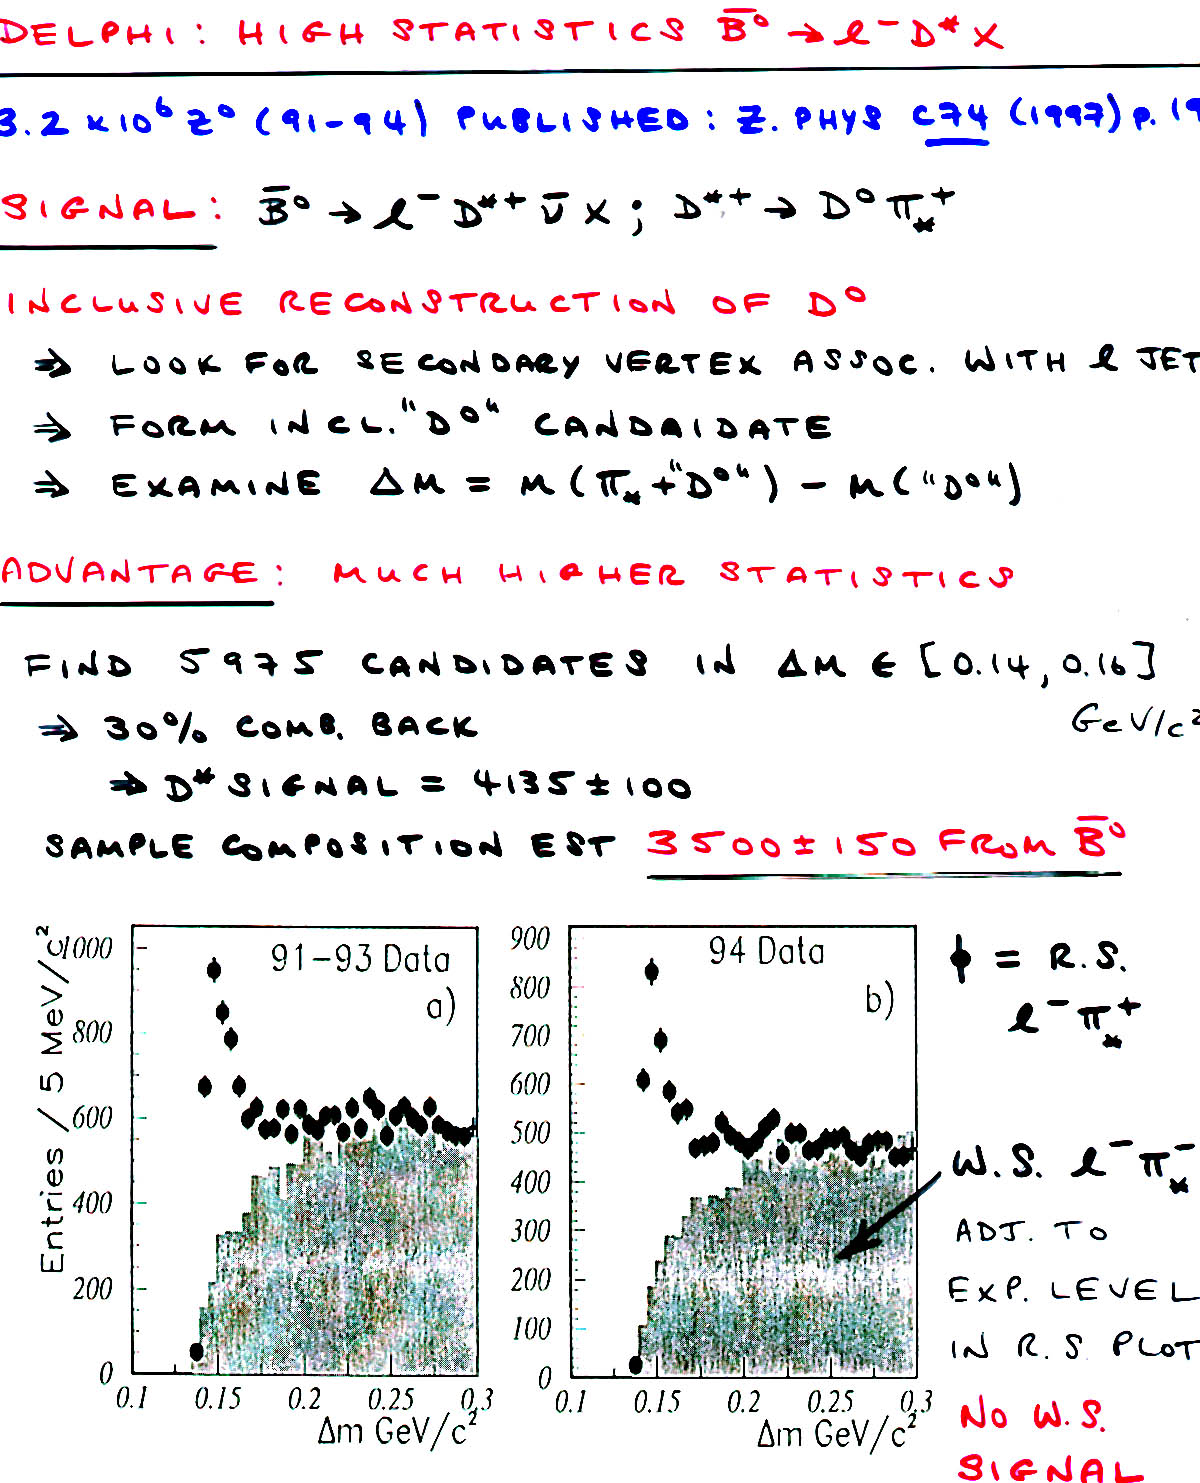 DELPHI: HIGH STATISTICS B̄⁰ → ℓ⁻ D* X
3.2 x 10⁶ Z⁰ (91-94) PUBLISHED: Z. PHYS C74 (1997) p. 19
SIGNAL: B̄⁰ → ℓ⁻ D*⁺ ν̄ X ; D*⁺ → D⁰ π⁺*
INCLUSIVE RECONSTRUCTION OF D⁰
⇒ LOOK FOR SECONDARY VERTEX ASSOC. WITH ℓ JET
⇒ FORM INCL. "D⁰" CANDAIDATE
⇒ EXAMINE ΔM = M(π* + "D⁰") - M("D⁰")
ADVANTAGE: MUCH HIGHER STATISTICS
FIND 5975 CANDIDATES IN ΔM ∈ [0.14, 0.16]
GeV/c²
⇒ 30% COMB. BACK
⇒ D* SIGNAL = 4135 ± 100
SAMPLE COMPOSITION EST 3500 ± 150 FROM B̄⁰
Entries / 5 MeV/c²
1000
800
600
400
200
0
91-93 Data
a)
0.1 0.15 0.2 0.25 0.3
Δm GeV/c²
900
800
700
600
500
400
300
200
100
0
94 Data
b)
0.1 0.15 0.2 0.25 0.3
Δm GeV/c²
= R.S.
ℓ⁻ π⁺*
W.S. ℓ⁻ π⁻*
ADJ. TO
EXP. LEVEL
IN R.S. PLOT
NO W.S.
SIGNAL